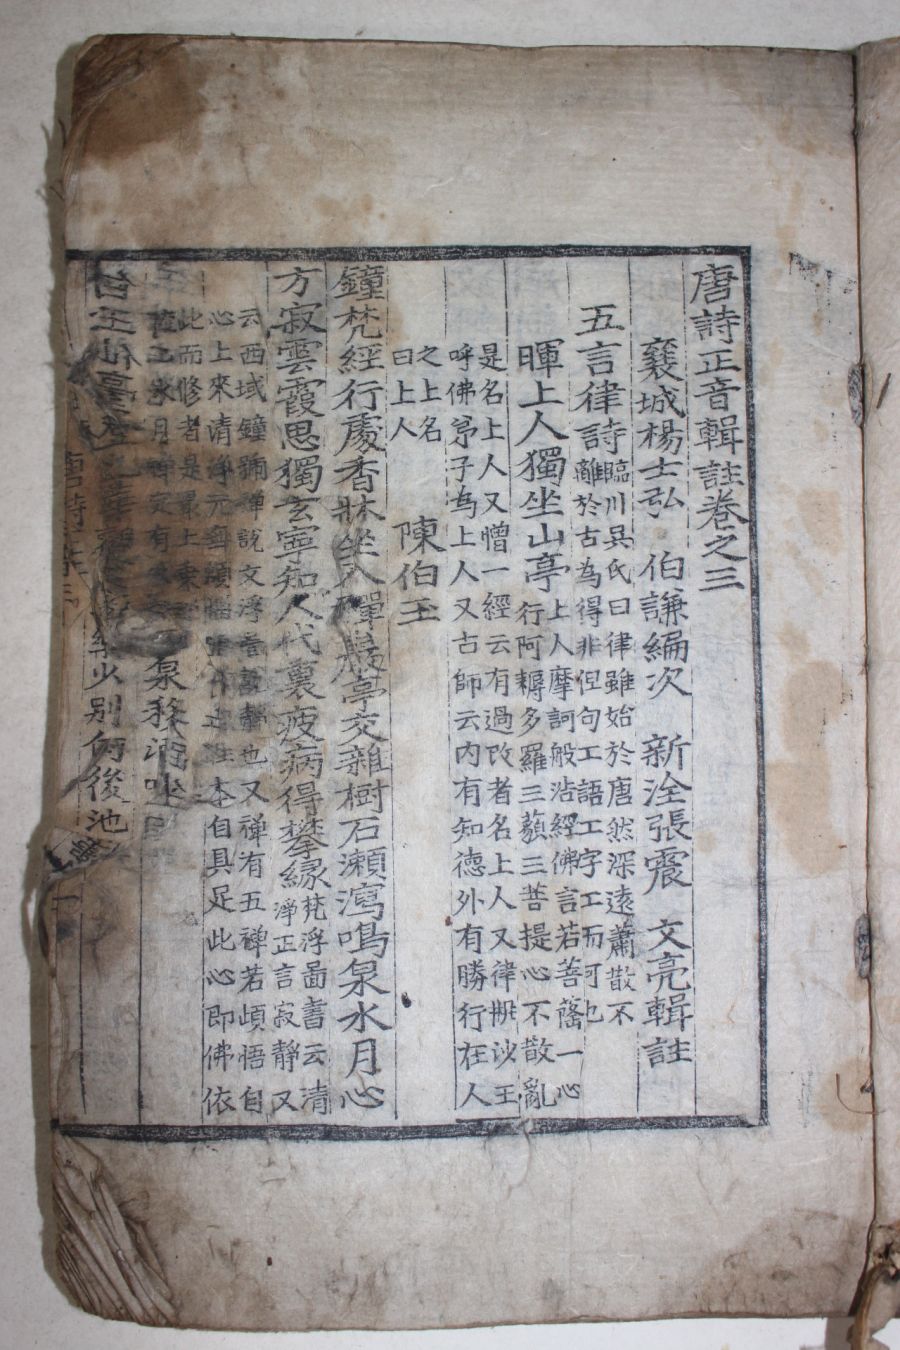 唐詩正音輯註卷之三
襄城楊士弘 伯謙編次 新淦張震 文亮輯註
五言律詩臨川吳氏曰律雖始於唐然深遠蕭散不
離於古為得非但句工語工字工而可也
暉上人獨坐山亭上人摩訶般浩經佛言若菩薩一心
行阿耨多羅三藐三菩提心不散亂
是名上人又憎一經云有過改者名上人又律瓶沙王
呼佛弟子為上人又古師云內有知德外有勝行在人
之上名
曰上人
陳伯玉
鐘梵經行處香牀坐入禪巖亭交雜樹石瀨瀉鳴泉水月心
方寂雲霞思獨玄寧知人代裏疲病得攀緣梵浮啚書云清
淨正言寂靜又
云西域鐘號禪說文浮 也又禅有五禅若頓悟自
心上來清淨元無煩惱 本自具足此心即佛依
此而修者是最上乘
水月禅定有 泉
山亭 少別 後池